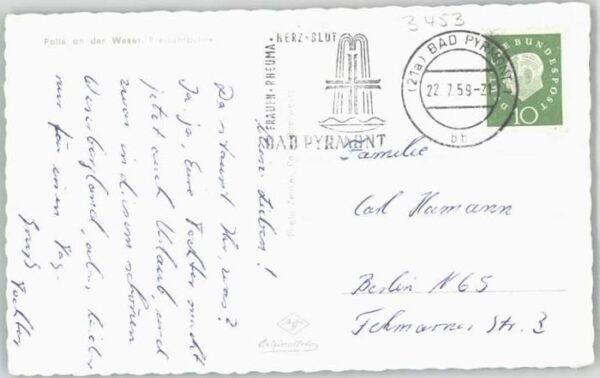 3453
Polle an der Weser.
FRAUEN · RHEUMA · HERZ · BLUT
BAD PYRMONT
(21a) BAD PYRMONT
22.7.59-2
bb
DEUTSCHE BUNDESPOST
10
Meine Lieben!
Da staunt Ihr, was?
Ja, ja, Eure Tochter macht
jetzt auch Urlaub, und
zwar in diesem schönen
Weserbergland, aber leider
nur für einen Tag.
Gruß Tochter
Familie
Carl Hamann
Berlin N65
Fehmarner Str. 3
Agfa